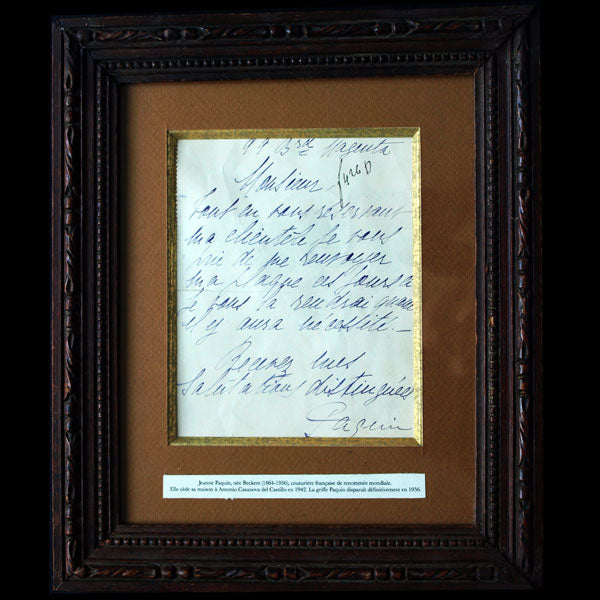 99 Brd Magenta
Monsieur,
426 D
Tout en vous réservant
ma clientèle je vous
prie de me renvoyer
ma plaque ces jours a
je vous la rendrai quand
il y aura nécessité. _
Recevez mes
Salutations distinguées
Paquin
Jeanne Paquin, née Beckers (1864-1936), couturière française de renommée mondiale.
Elle cède sa maison à Antonio Canovas del Castillo en 1942. La griffe Paquin disparaît définitivement en 1956.